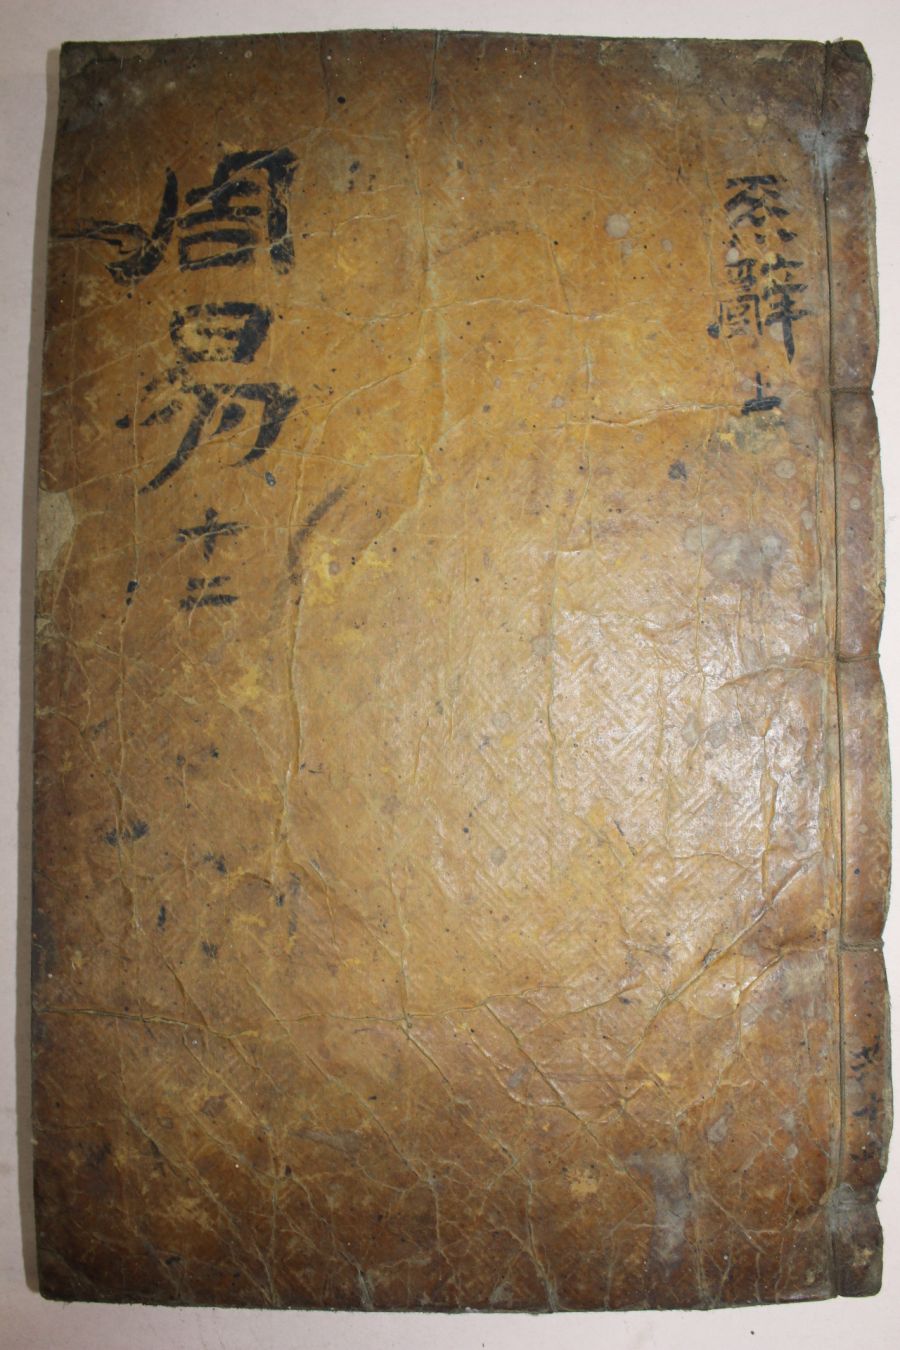 繫辭 上
周易 十二